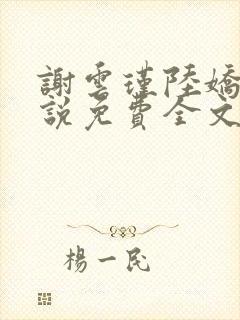 謝雲瑾陸嬌
說免費全文
楊一民